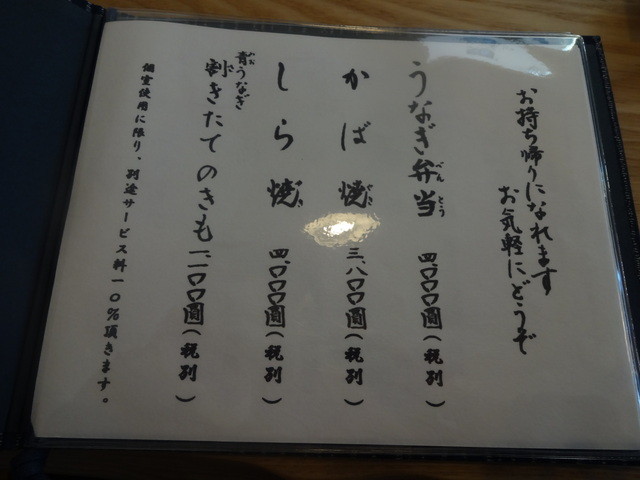 お持ち帰りになれます
お気軽にどうぞ
うなぎ弁当 四、〇〇〇圓(税別)
べんとう
かば焼 三、八〇〇圓(税別)
やき
しら焼 四、〇〇〇圓(税別)
やき
青うなぎ
あお
割きたてのきも 一、二〇〇圓(税別)
さ
個室使用に限り、別途サービス料一〇%頂きます。